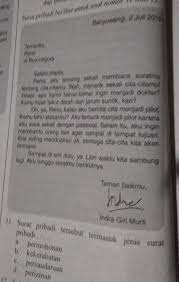 Surat pribadi berikut untuk soal nomor 11 dan
Banyuwangi, 2 Juli 2015
Temanku,
Reno
di Bojonegoro
Salam manis,
Reno, aku senang sekali membaca suratmu
tentang cita-citamu. Wah, menarik sekali cita-citamu
tetapi, apa kamu benar-benar ingin menjadi dokter?
Kamu tidak takut darah dan jarum suntik, kan?
Oh, ya, Reno, kalau aku bercita-cita menjadi pilot.
Kamu tahu alasanku? Aku tertarik menjadi pilot karena
aku suka sekali dengan pesawat. Selain itu, aku ingin
membantu orang lain agar sampai di tempat tujuan.
Kita saling mendoakan ya, semoga cita-cita kita akan
tercapai.
Sampai di sini dulu, ya. Lain waktu kita sambung
lagi. Aku tunggu suratmu berikutnya.
Teman baikmu,
Indra Giri Murti
11. Surat pribadi tersebut termasuk jenis surat
pribadi ....
a. permohonan
b. kekerabatan
c. persaudaraan
d. perizinan